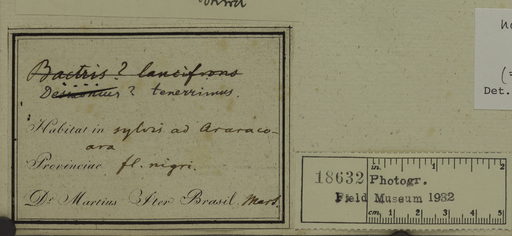 Bactris? lancifrons
Desmoncus? tenerrimus.
Habitat in sylvis ad Araraco-
ara
Provinciae fl. nigri.
Dr Martius Iter Brasil. Mart.
Det.
18632 Photogr.
Field Museum 1932
in. 1 2
cm. 1 2 3 4 5